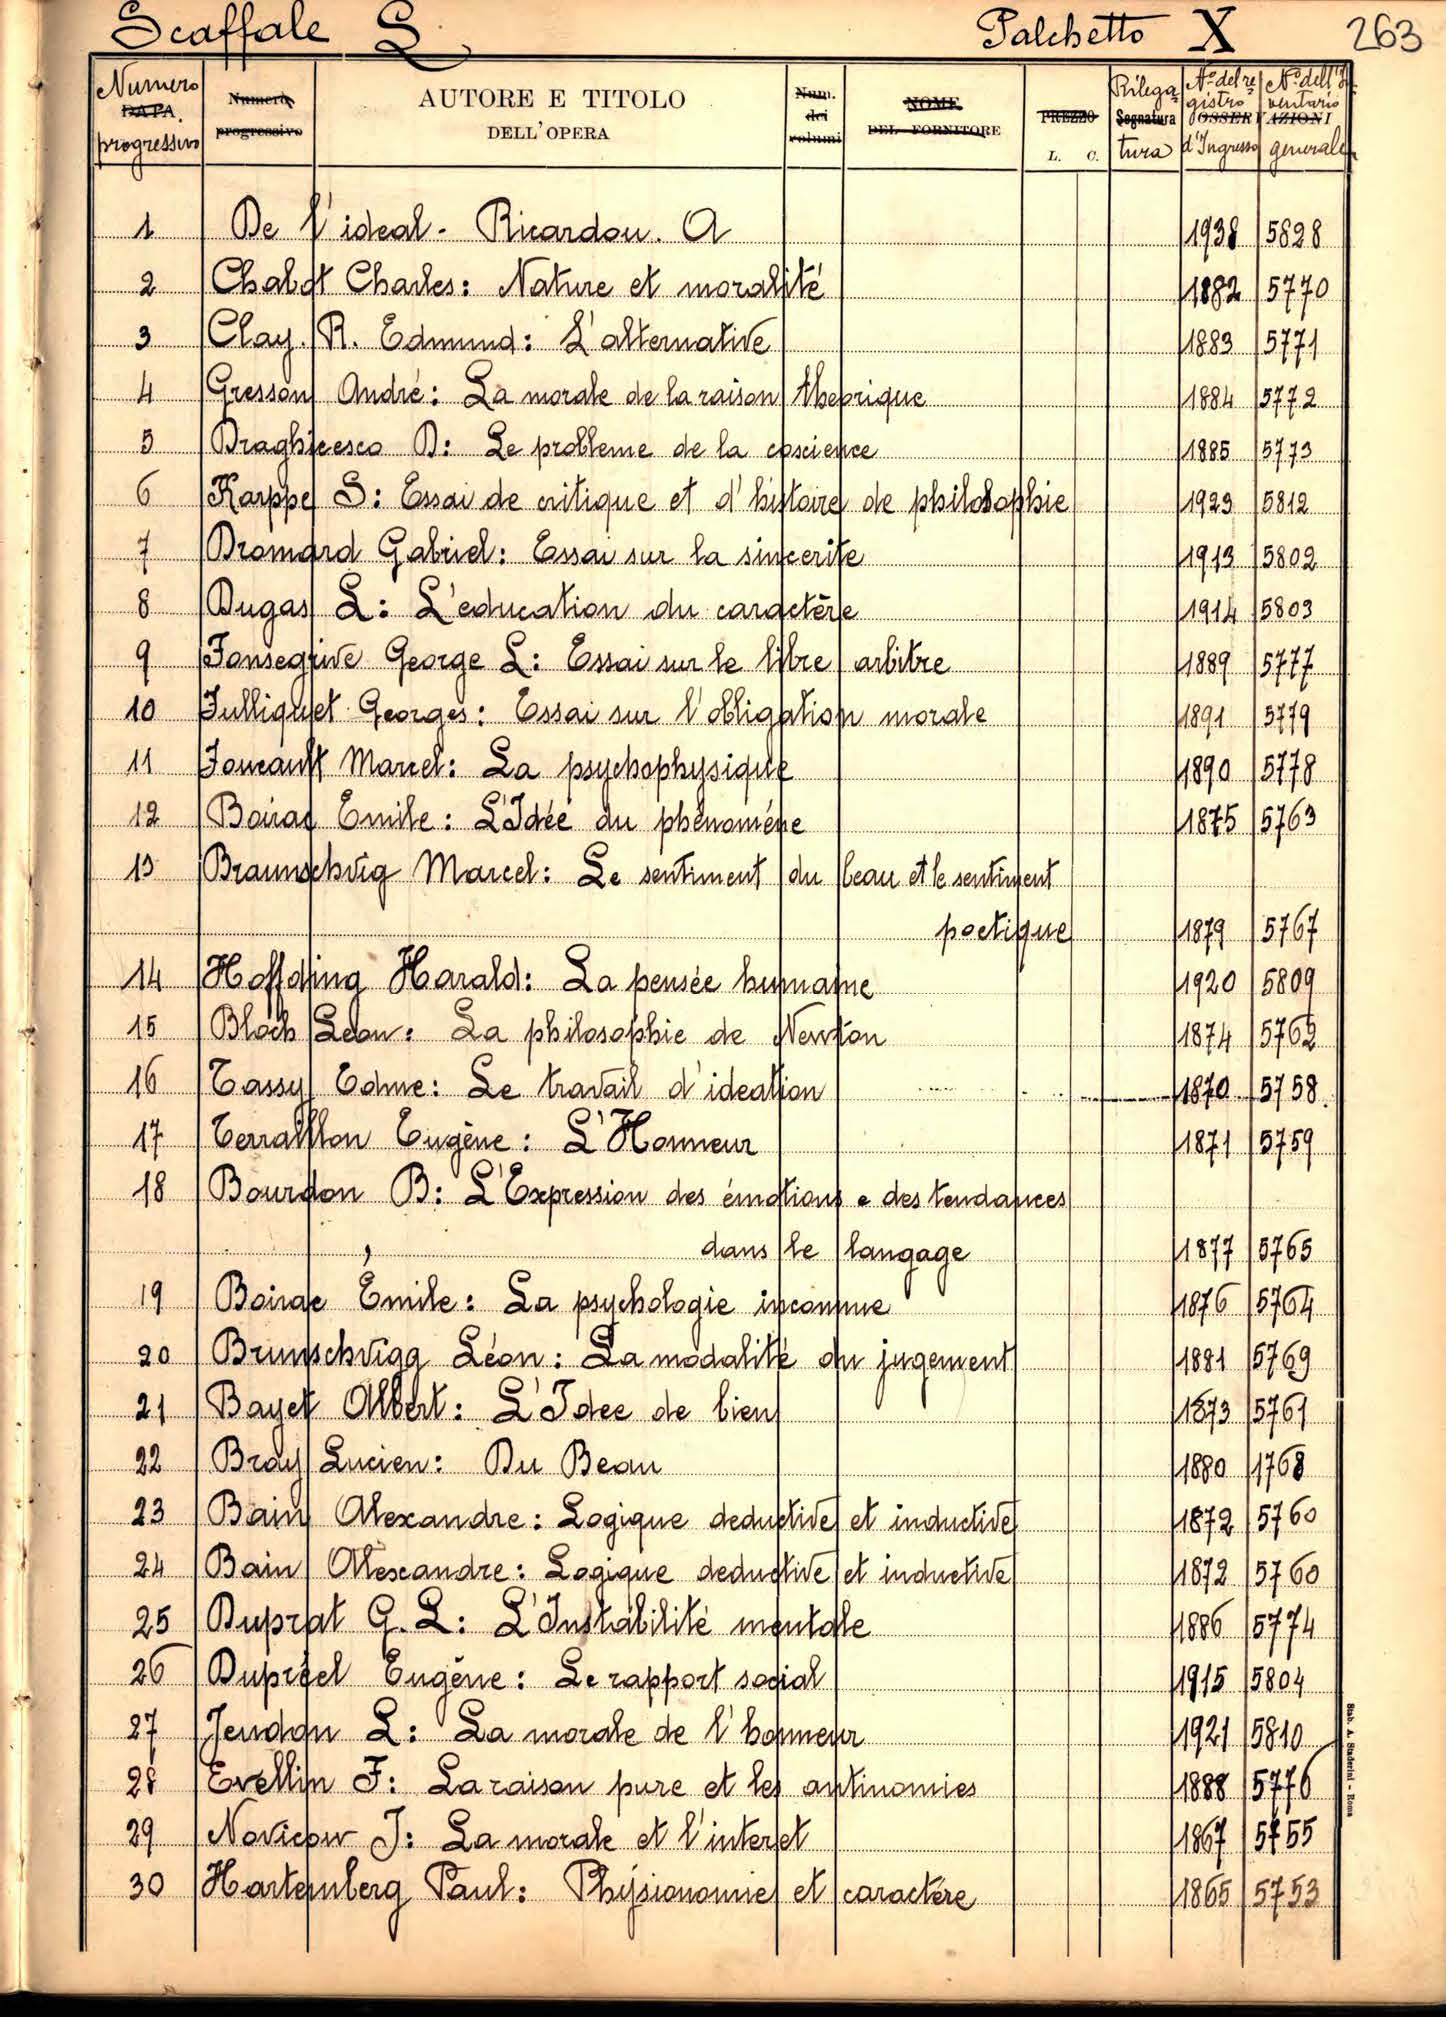 Scaffale L Palchetto X 263
Numero DATA progressivo Numero progressivo AUTORE E TITOLO DELL'OPERA Num. dei volumi NOME DEL FORNITORE PREZZO L. C. Rilega- Segnatura tura N° del re- gistro d'Ingresso OSSERVAZIONI N° dell'In- ventario generale
1 De l'ideal - Ricardou. A 1938 5828
2 Chabot Charles: Nature et moralité 1882 5770
3 Clay. R. Edmund: L'alternative 1883 5771
4 Gresson André: La morale de la raison theorique 1884 5772
5 Draghicesco D: Le probleme de la coscience 1885 5773
6 Karppe S: Essai de critique et d'histoire de philosophie 1923 5812
7 Dromard Gabriel: Essai sur la sincerite 1913 5802
8 Dugas L: L'education du caractère 1914 5803
9 Fonsegrive George L: Essai sur le libre arbitre 1889 5777
10 Fulliquet Georges: Essai sur l'obligation morale 1891 5779
11 Foucault Marcel: La psychophysique 1890 5778
12 Boirac Emile: L'Idée du phénoméne 1875 5763
13 Braunschvig Marcel: Le sentiment du beau et le sentiment
poetique 1879 5767
14 Hoffding Harald: La pensée humaine 1920 5809
15 Bloch Leon: La philosophie de Newton 1874 5762
16 Tassy Edme: Le travail d'ideation 1870 5758
17 Terraillon Eugène: L'Honneur 1871 5759
18 Bourdon B: L'Expression des émotions e des tendances
dans le langage 1877 5765
19 Boirac Émile: La psychologie inconnue 1876 5764
20 Brunschvigg Léon: La modalité du jugement 1881 5769
21 Bayet Albert: L'Idee de bien 1873 5761
22 Bray Lucien: Du Beau 1880 1768
23 Bain Alexandre: Logique deductive et inductive 1872 5760
24 Bain Alexandre: Logique deductive et inductive 1872 5760
25 Duprat G. L: L'Instabilité mentale 1886 5774
26 Dupréel Eugène: Le rapport social 1915 5804
27 Jeudon L: La morale de l'honneur 1921 5810
28 Evellin F: La raison pure et les antinomies 1888 5776
29 Novicow J: La morale et l'interet 1867 5755
30 Hartemberg Paul: Physionomie et caractére 1865 5753
Stab. A. Staderini - Roma